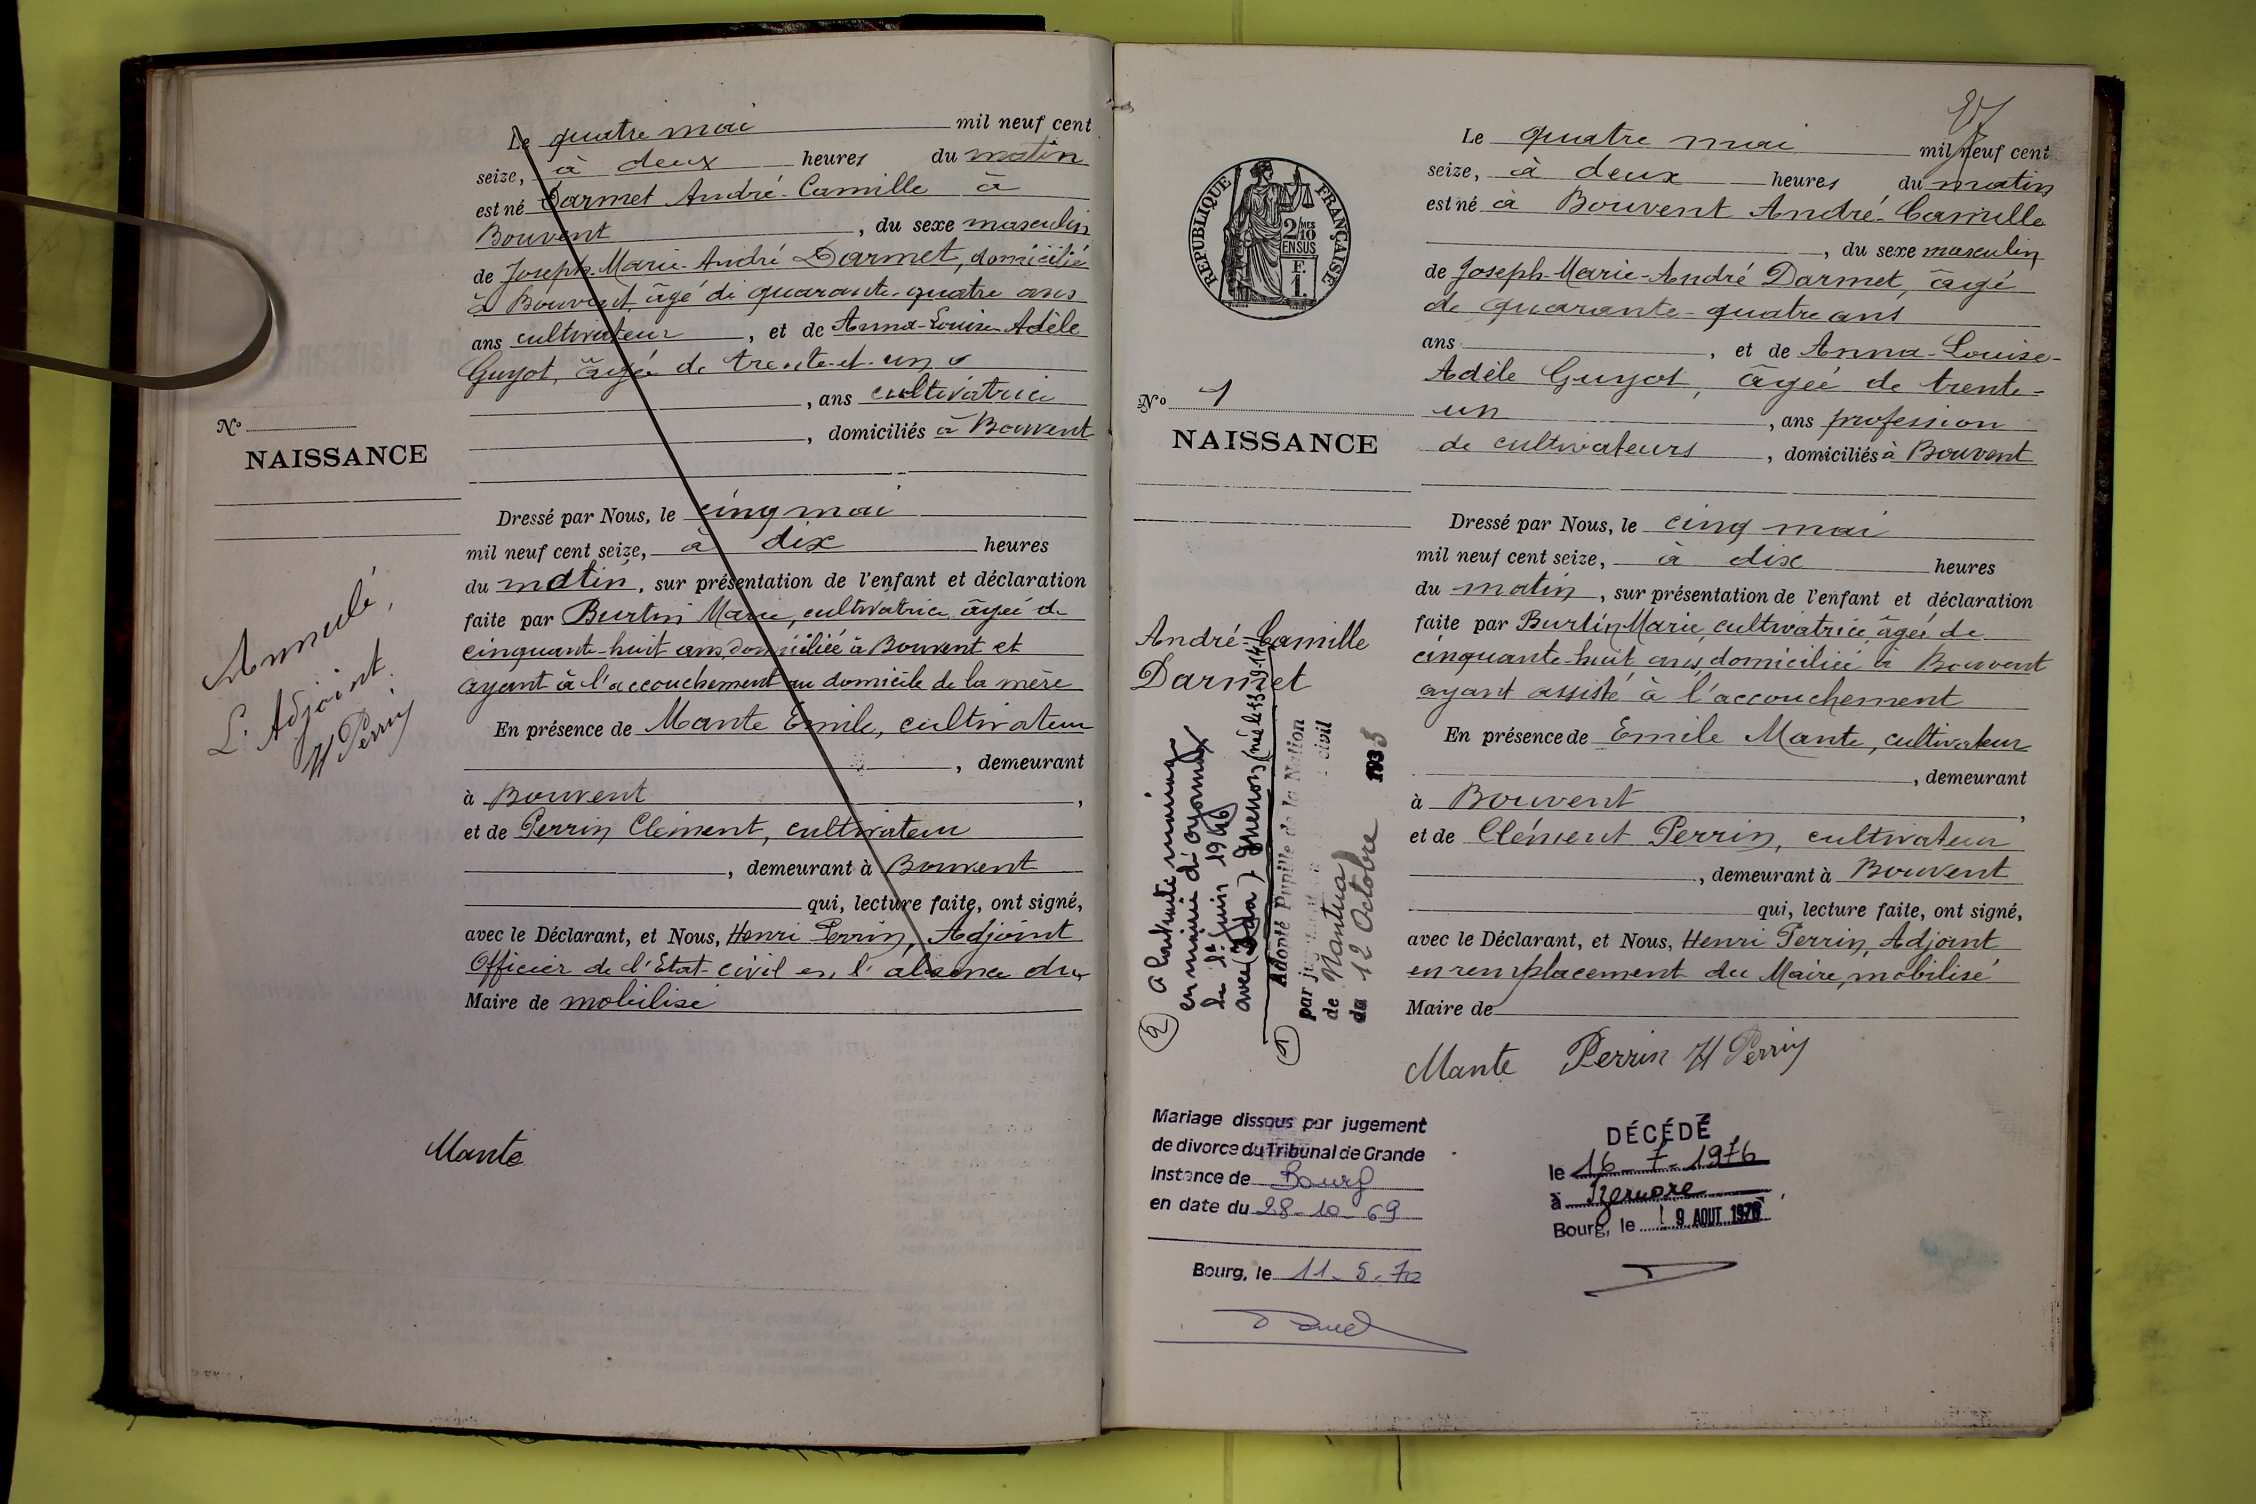 Le quatre mai mil neuf cent
seize, à deux heures du matin
est né Darmet André-Camille à
Bouvent, du sexe masculin
de Joseph-Marie-André Darmet, domicilié
à Bouvent, âgé de quarante-quatre ans
ans cultivateur, et de Anna-Louise Adèle
Guyot, âgée de trente-et-un
, ans cultivatrice
, domiciliés à Bouvent
N°
NAISSANCE
Dressé par Nous, le cinq mai
mil neuf cent seize, à dix heures
du matin, sur présentation de l'enfant et déclaration
faite par Burtin Marie, cultivatrice, âgée de
cinquante-huit ans, domiciliée à Bouvent et
ayant à l'accouchement au domicile de la mère
En présence de Mante Emile, cultivateur
, demeurant
à Bouvent,
et de Perrin Clément, cultivateur
, demeurant à Bouvent
qui, lecture faite, ont signé,
avec le Déclarant, et Nous, Henri Perrin, Adjoint
Officier de l'Etat-civil en l'absence du
Maire de mobilisé
Annulé,
L'Adjoint.
H Perrin
Mante
Le quatre mai mil neuf cent
seize, à deux heures du matin
est né à Bouvent André-Camille
, du sexe masculin
de Joseph-Marie-André Darmet, âgé
de quarante-quatre ans
ans, et de Anna-Louise-
Adèle Guyot, âgée de trente-
un, ans profession
de cultivateurs, domiciliés à Bouvent
RÉPUBLIQUE FRANÇAISE
2/10 MES
EN SUS
F.
1.
N° 1
NAISSANCE
André-Camille
Darmet
Dressé par Nous, le cinq mai
mil neuf cent seize, à dix heures
du matin, sur présentation de l'enfant et déclaration
faite par Burtin Marie, cultivatrice, âgée de
cinquante-huit ans, domiciliée à Bouvent
ayant assisté à l'accouchement
En présence de Emile Mante, cultivateur
, demeurant
à Bouvent,
et de Clément Perrin, cultivateur
, demeurant à Bouvent
qui, lecture faite, ont signé,
avec le Déclarant, et Nous, Henri Perrin, Adjoint
en remplacement du Maire, mobilisé
Maire de
Mante Perrin H Perrin
(1) Adopté Pupille de la Nation
par civil
de Nantua
du 12 Octobre 1933
(2) a contracté mariage
en mairie d'Oyonnax
le 1er juin 1946
avec
Mariage dissous par jugement
de divorce du Tribunal de Grande
Instance de Bourg
en date du 28-10-69
Bourg, le 11-5-70
DÉCÉDÉ
le 16-7-1976
à Izernore
Bourg, le 9 AOUT 1976